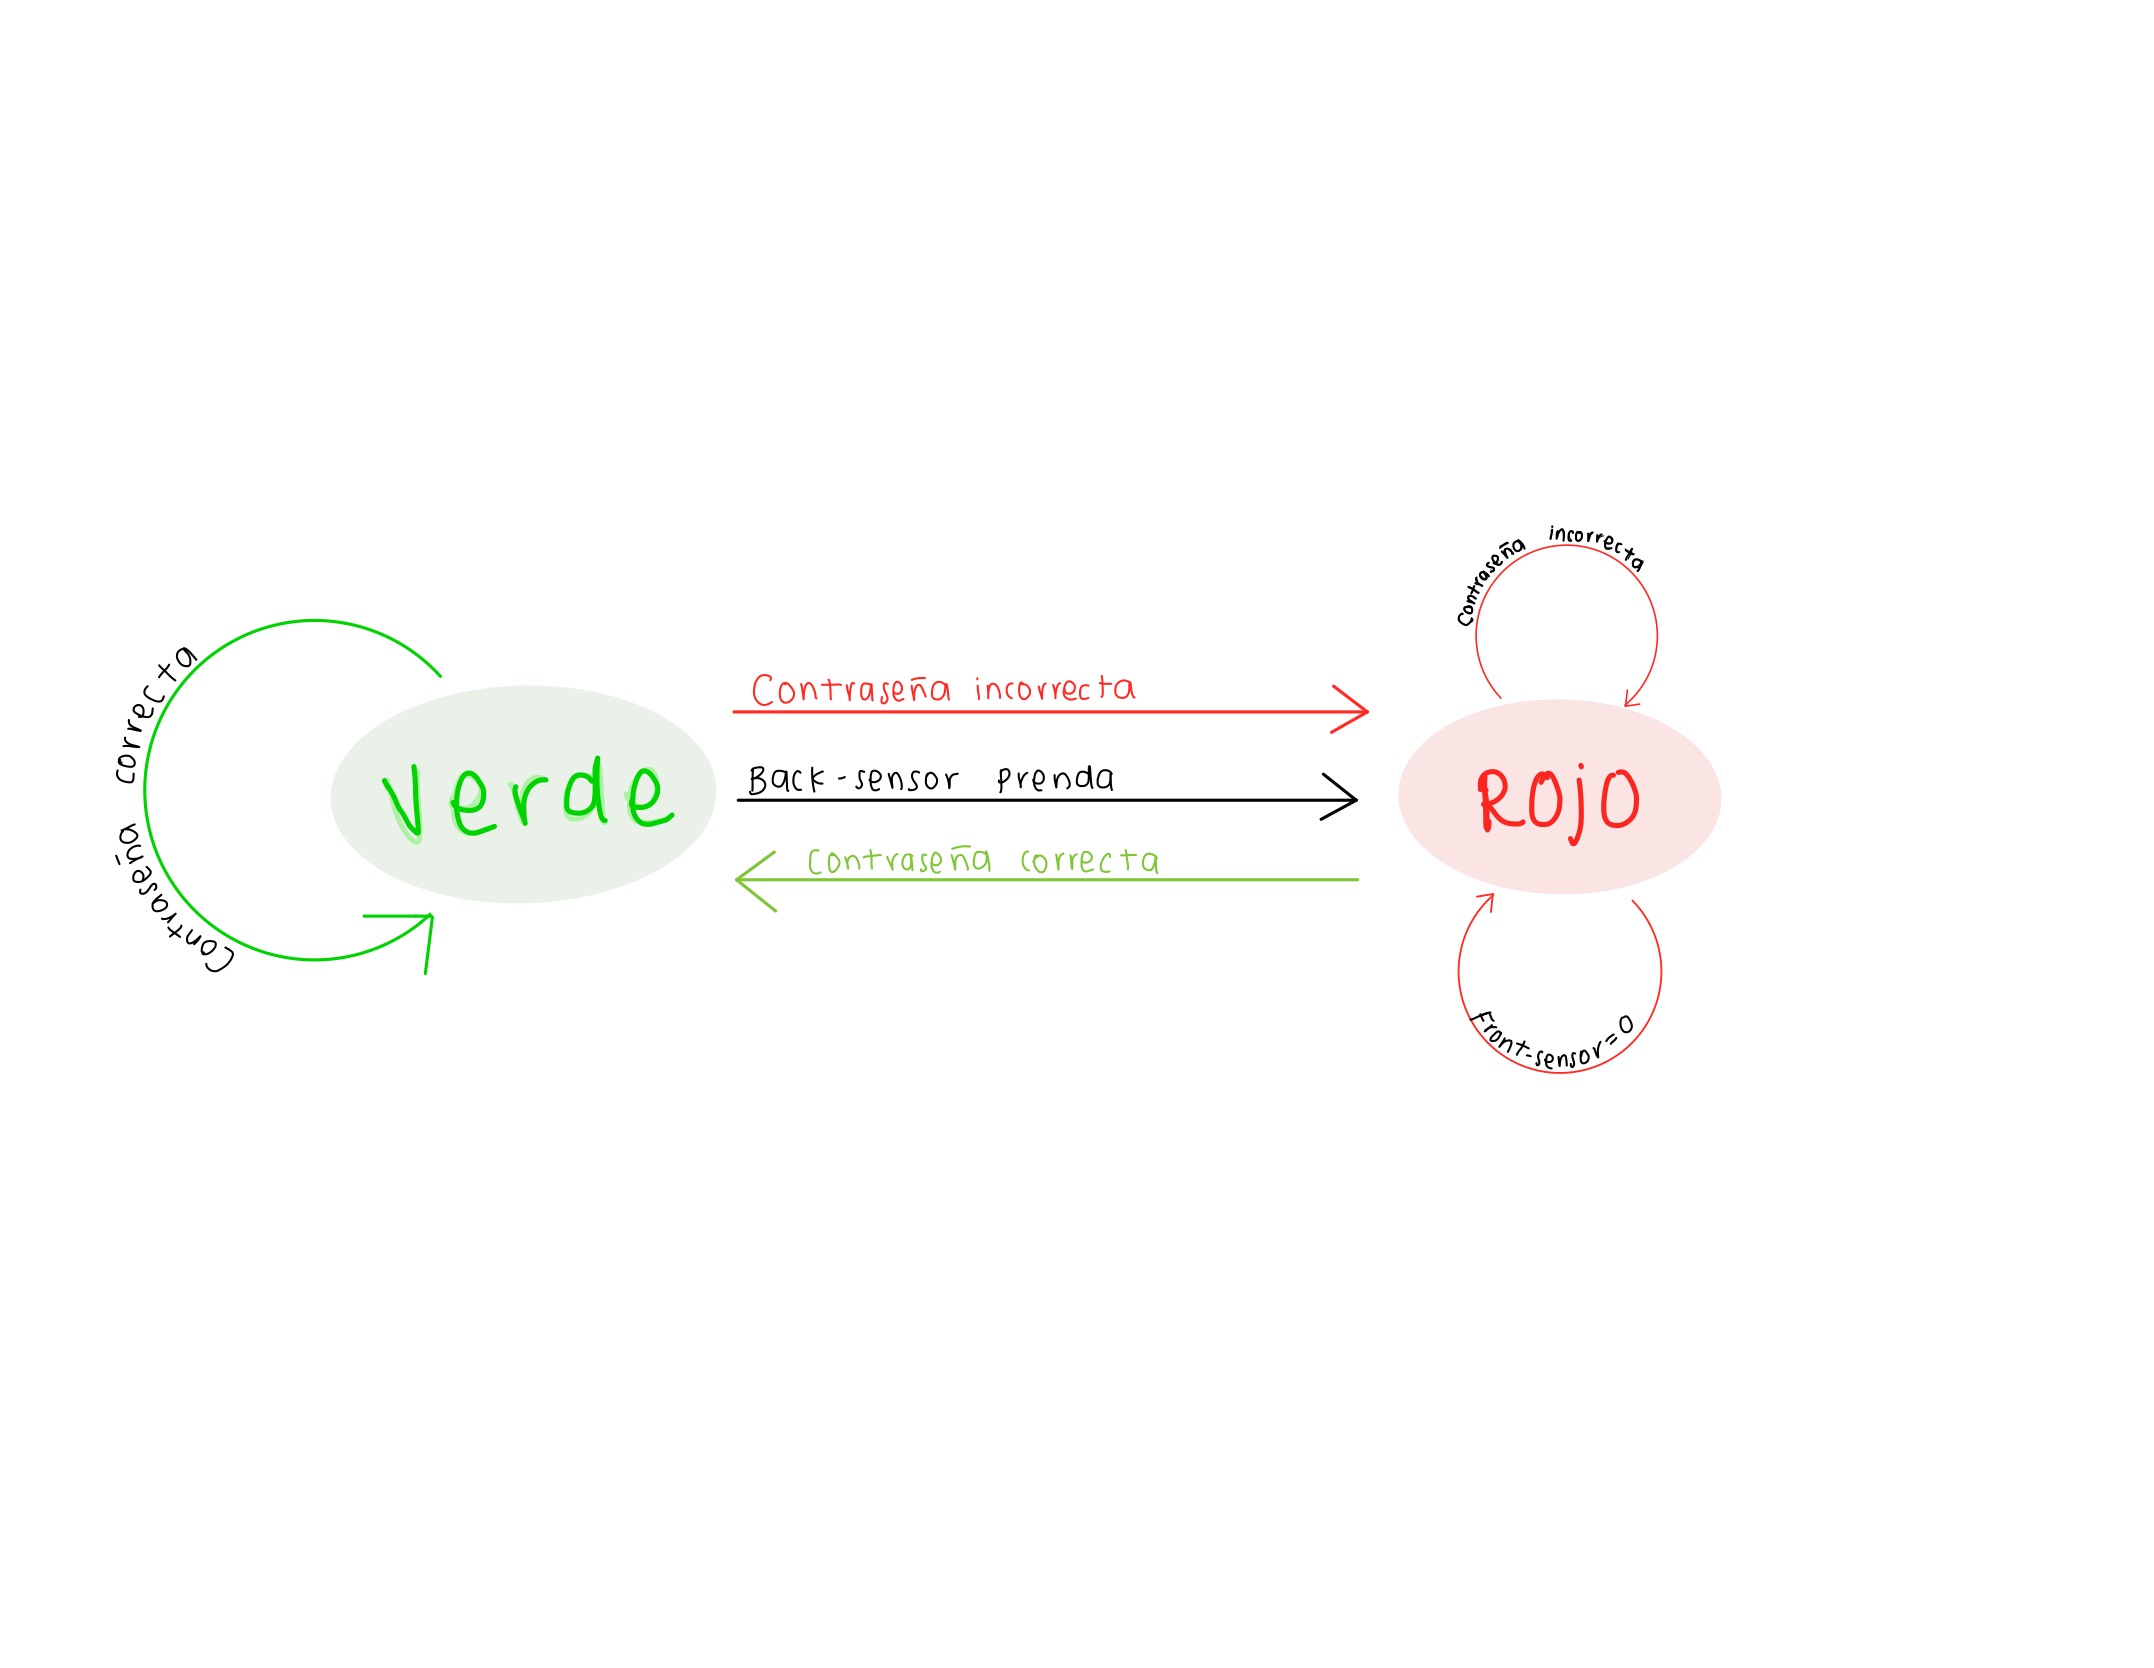 Contraseña correcta
Verde
Contraseña incorrecta
Back-sensor prenda
Contraseña correcta
Contraseña incorrecta
Rojo
Front-sensor=0